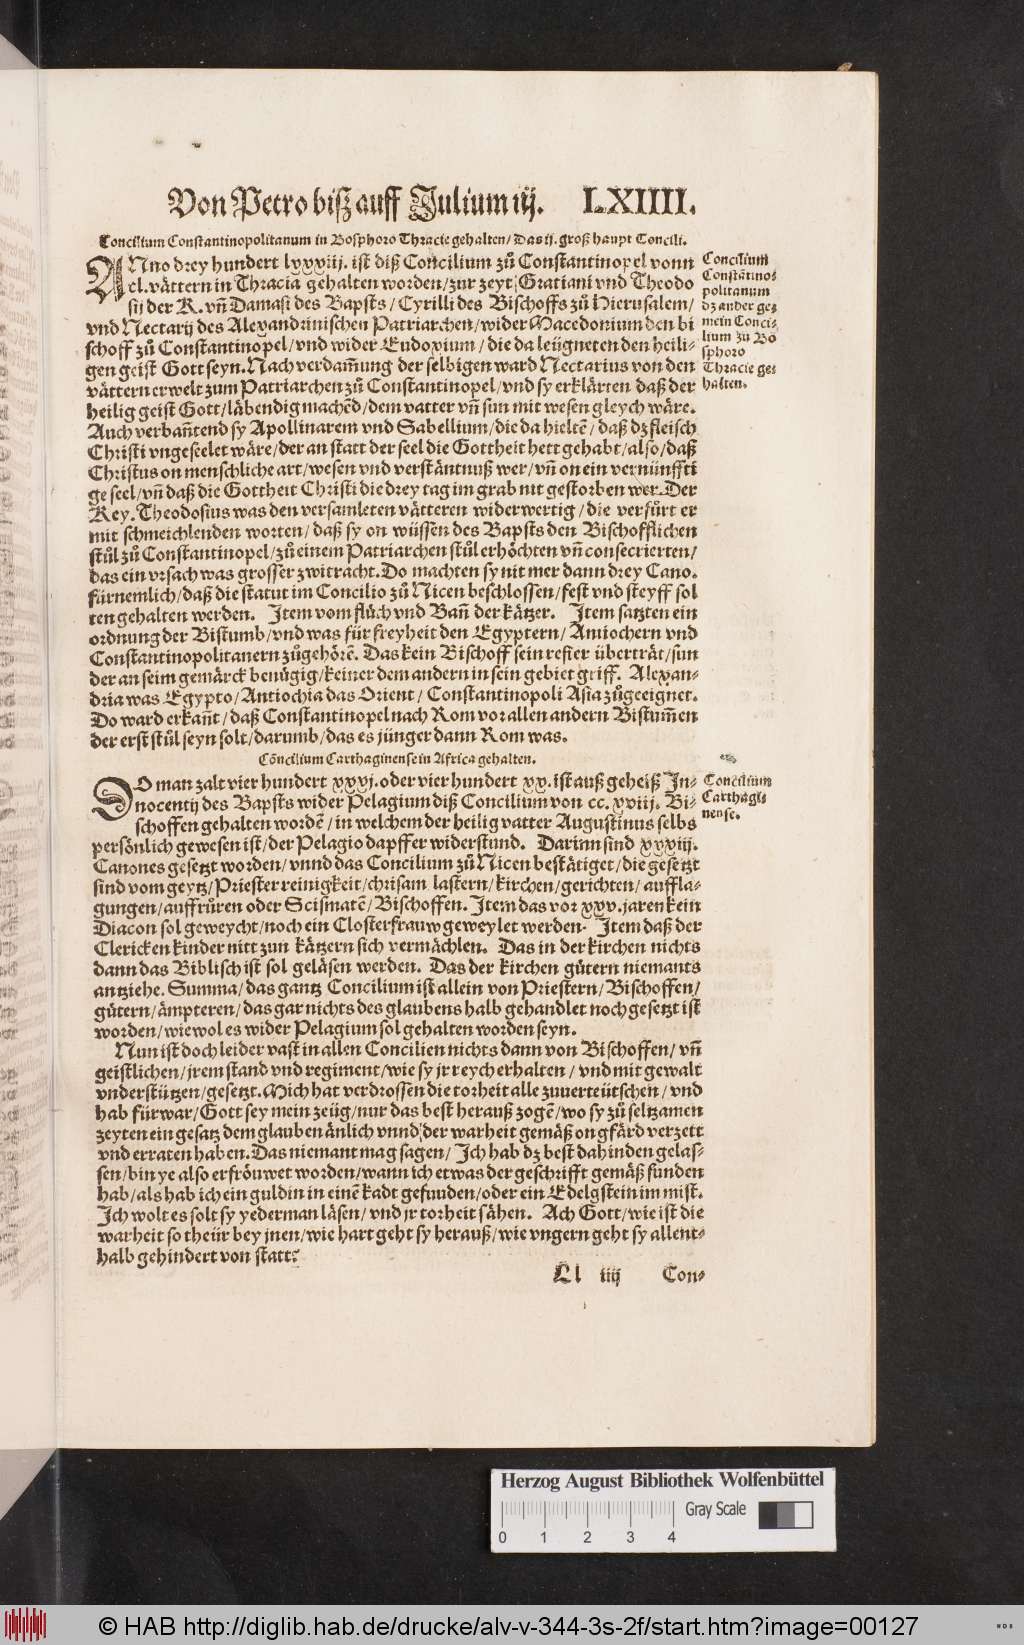 Von Petro biß auff Julium iij. LXIIII.
Concilium Constantinopolitanum in Bosphoro Thracie gehalten/ Das ij. groß haupt Concili.
ANno drey hundert lxxxiij. ist diß Concilium zů Constantinopel vonn
cl. vättern in Thracia gehalten worden/ zur zeyt Gratiani vnd Theodo
sij der K. vn̄ Damasi des Bapsts/ Cyrilli des Bischoffs zů Hierusalem/
vnd Nectarij des Alexandrinischen Patriarchen/ wider Macedonium den bi
schoff zů Constantinopel/ vnd wider Eudoxium/ die da leügneten den heili-
gen geist Gott seyn. Nach verdam̄ung der selbigen ward Nectarius von den
vättern erwelt zum Patriarchen zů Constantinopel/ vnd sy erklärten daß der
heilig geist Gott/ läbendig machēd/ dem vatter vn̄ sun mit wesen gleych wäre.
Auch verban̄tend sy Apollinarem vnd Sabellium/ die da hieltē/ daß dz fleisch
Christi vngeseelet wäre/ der an statt der seel die Gottheit hett gehabt/ also/ daß
Christus on menschliche art/ wesen vnd verstäntnuß wer/ vn̄ on ein vernünffti
ge seel/ vn̄ daß die Gottheit Christi die drey tag im grab nit gestorben wer. Der
Key. Theodosius was den versamleten vätteren widerwertig/ die verfürt er
mit schmeichlenden worten/ daß sy on wüssen des Bapsts den Bischofflichen
stůl zů Constantinopel/ zů einem Patriarchen stůl erhöchten vn̄ consecrierten/
das ein vrsach was grosser zwitracht. Do machten sy nit mer dann drey Cano.
fürnemlich/ daß die statut im Concilio zů Nicen beschlossen/ fest vnd steyff sol
ten gehalten werden. Item vom flůch vnd Ban̄ der kätzer. Item satzten ein
ordnung der Bistumb/ vnd was für freyheit den Egyptern/ Antiochern vnd
Constantinopolitanern zůgehörē. Das kein Bischoff sein refier überträt/ sun
der an seim gemärck benügig/ keiner dem andern in sein gebiet griff. Alexan-
dria was Egypto/ Antiochia das Orient/ Constantinopoli Asia zůgeeignet.
Do ward erkan̄t/ daß Constantinopel nach Rom vor allen andern Bistum̄en
der erst stůl seyn solt/ darumb/ das es jünger dann Rom was.
Concilium
Constātino-
politanum
dz ander ge-
mein Conci-
lium zu Bo
sphoro
Thracie ge-
halten.
Cōncilium Carthaginense in Africa gehalten.
DO man zalt vier hundert xxxj. oder vier hundert xx. ist auß geheiß In-
nocentij des Bapsts wider Pelagium diß Concilium von cc. xviij. Bi-
schoffen gehalten wordē/ in welchem der heilig vatter Augustinus selbs
persönlich gewesen ist/ der Pelagio dapffer widerstund. Darinn sind xxxiij.
Canones gesetzt worden/ vnnd das Concilium zů Nicen bestätiget/ die gesetzt
sind vom geytz/ Priester reinigkeit/ chrisam lastern/ kirchen/ gerichten/ auffla-
gungen/ auffrůren oder Scismatē/ Bischoffen. Item das vor xxv. jaren kein
Diacon sol geweycht/ noch ein Closterfrauw geweylet werden. Item daß der
Clericken kinder nitt zun kätzern sich vermächlen. Das in der kirchen nichts
dann das Biblisch ist sol geläsen werden. Das der kirchen gůtern niemants
antziehe. Summa/ das gantz Concilium ist allein von Priestern/ Bischoffen/
gůtern/ ämpteren/ das gar nichts des glaubens halb gehandlet noch gesetzt ist
worden/ wiewol es wider Pelagium sol gehalten worden seyn.
Concilium
Carthagi-
nense.
Nun ist doch leider vast in allen Concilien nichts dann von Bischoffen/ vn̄
geistlichen/ jrem stand vnd regiment/ wie sy jr reych erhalten/ vnd mit gewalt
vnderstützen/ gesetzt. Mich hat verdrossen die torheit alle zuuerteütschen/ vnd
hab fürwar/ Gott sey mein zeüg/ nur das best herauß zogē/ wo sy zů seltzamen
zeyten ein gesatz dem glauben änlich vnnd der warheit gemäß ongfärd verzett
vnd erraten haben. Das niemant mag sagen/ Ich hab dz best dahinden gelas-
sen/ bin ye also erfröuwet worden/ wann ich etwas der geschrifft gemäß funden
hab/ als hab ich ein guldin in einē kadt gefuuden/ oder ein Edelgstein im mist.
Ich wolt es solt sy yederman läsen/ vnd jr torheit sähen. Ach Gott/ wie ist die
warheit so theür bey jnen/ wie hart geht sy herauß/ wie vngern geht sy allent-
halb gehindert von statt?
Ll iiij Con-
Herzog August Bibliothek Wolfenbüttel
Gray Scale
0 1 2 3 4
© HAB http://diglib.hab.de/drucke/alv-v-344-3s-2f/start.htm?image=00127